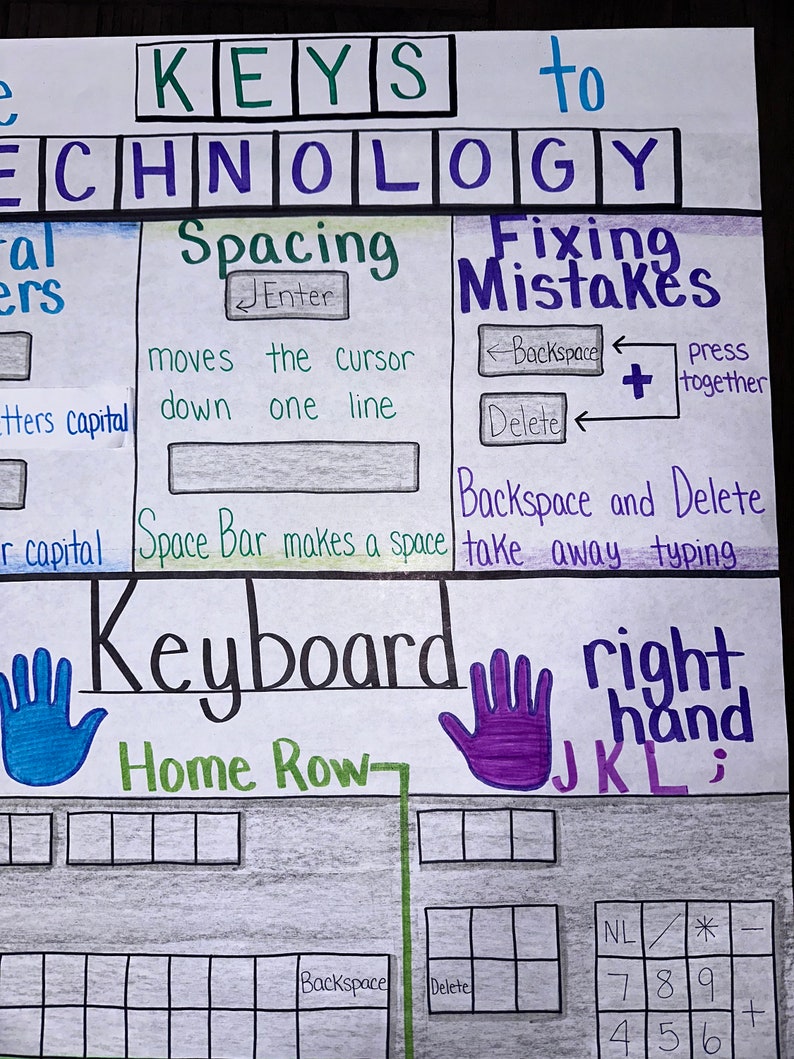 e KEYS to
ECHNOLOGY
tal
ers
tters capital
r capital
Spacing
↲ Enter
moves the cursor
down one line
Space Bar makes a space
Fixing
Mistakes
← Backspace
+
Delete
press
together
Backspace and Delete
take away typing
Keyboard
right
hand
J K L ;
Home Row
Backspace
Delete
NL / * -
7 8 9
+
4 5 6